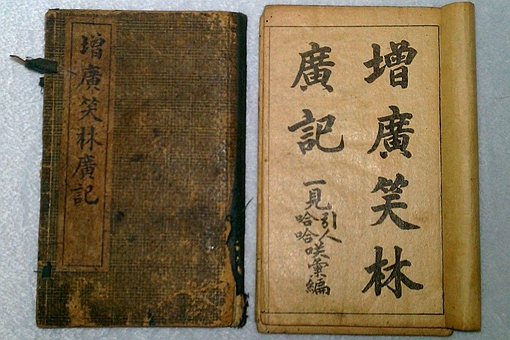 增廣笑林廣記
增廣笑林
廣記
一見引人哈哈咲彙編